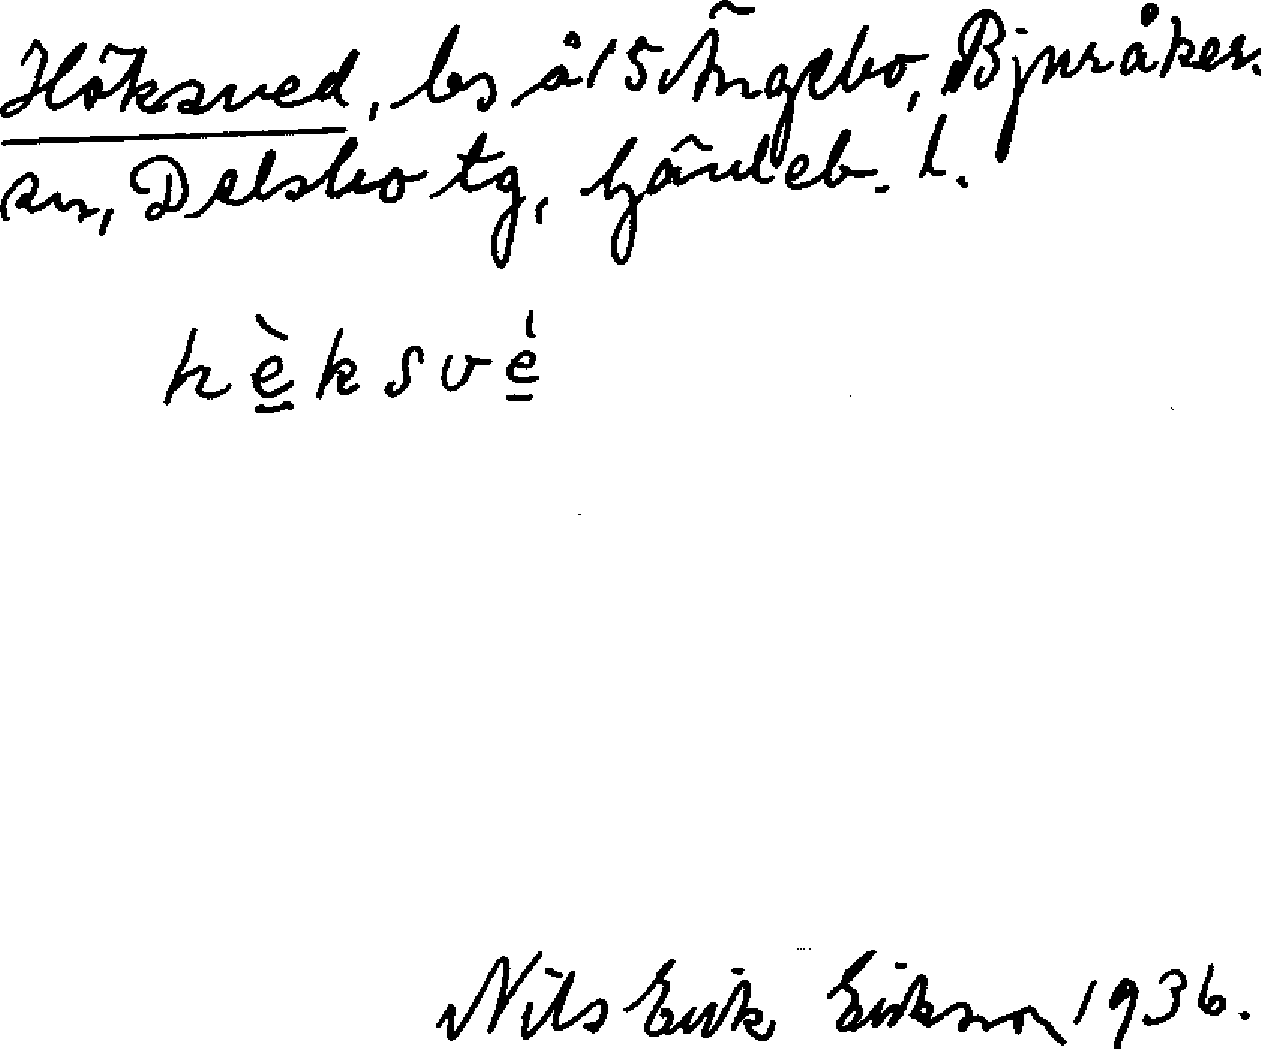 Höksved, bs å 15 Ängebo, Bjuråkers
sn, Delsbo tg, Gävleb. l.
hèksvé
Nils Erik Erikson 1936.